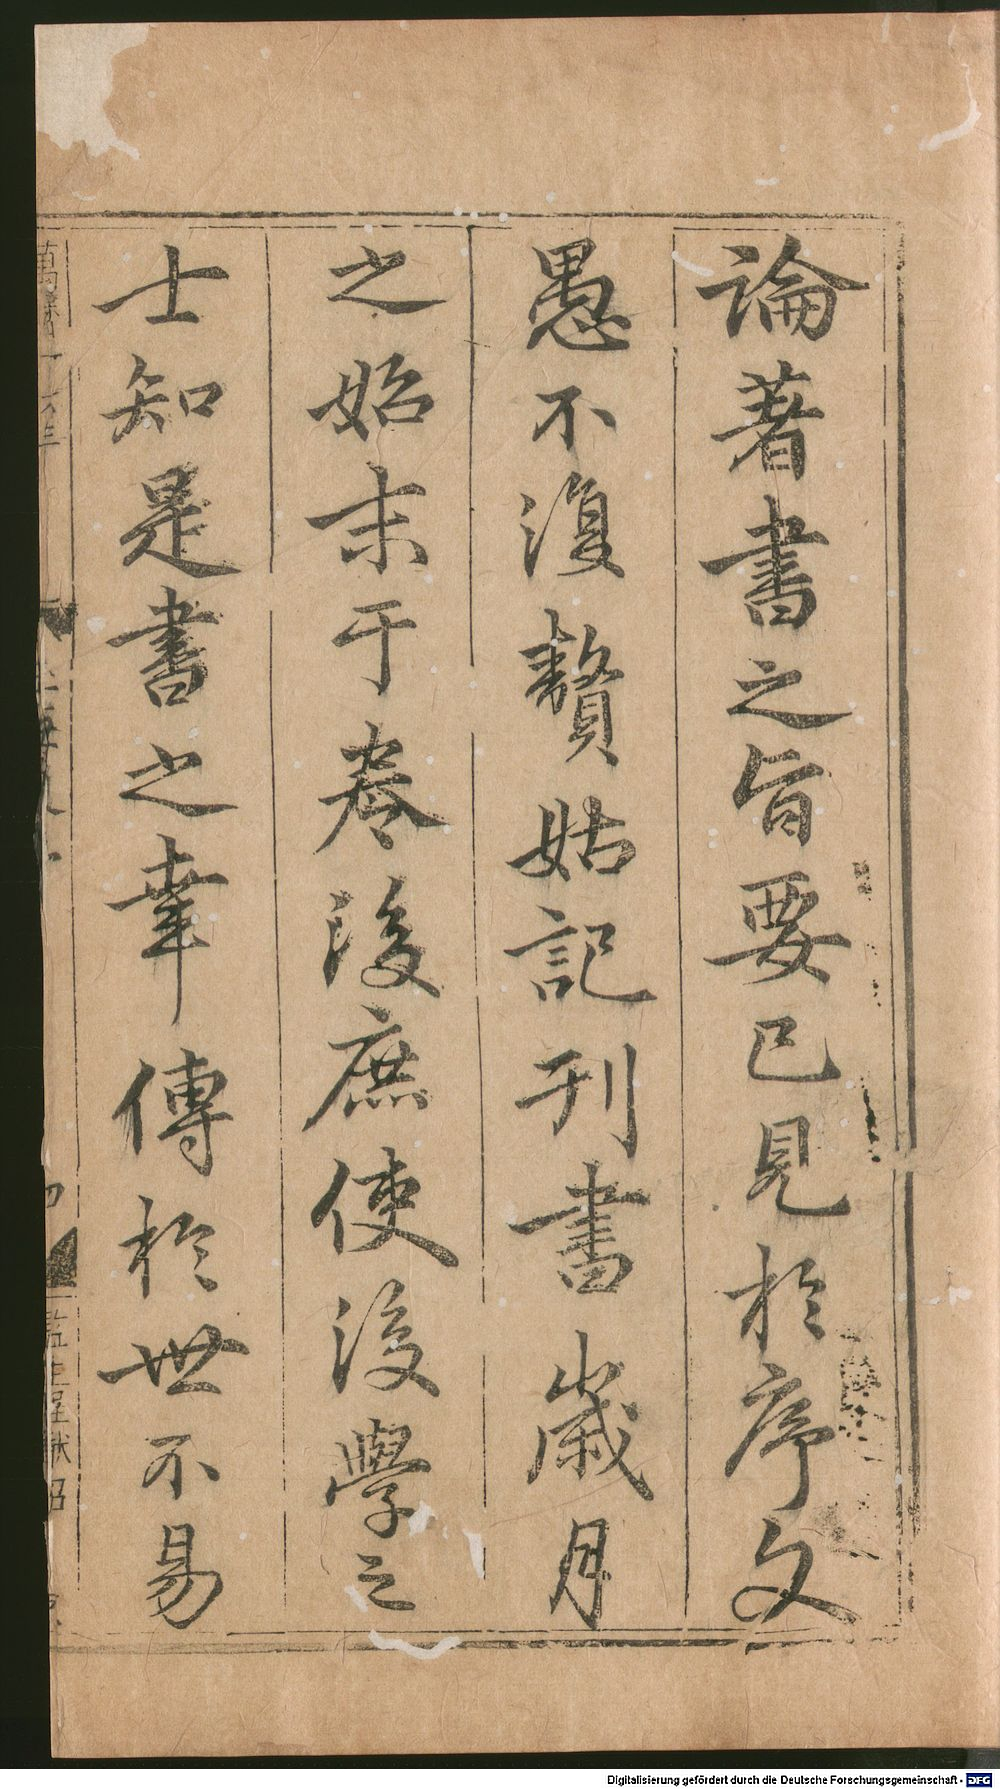 論著書之旨要已見於序文
愚不復贅姑記刊書歲月
之始末于卷後庶使後學之
士知是書之幸傳於世不易
Digitalisierung gefördert durch die Deutsche Forschungsgemeinschaft - DFG